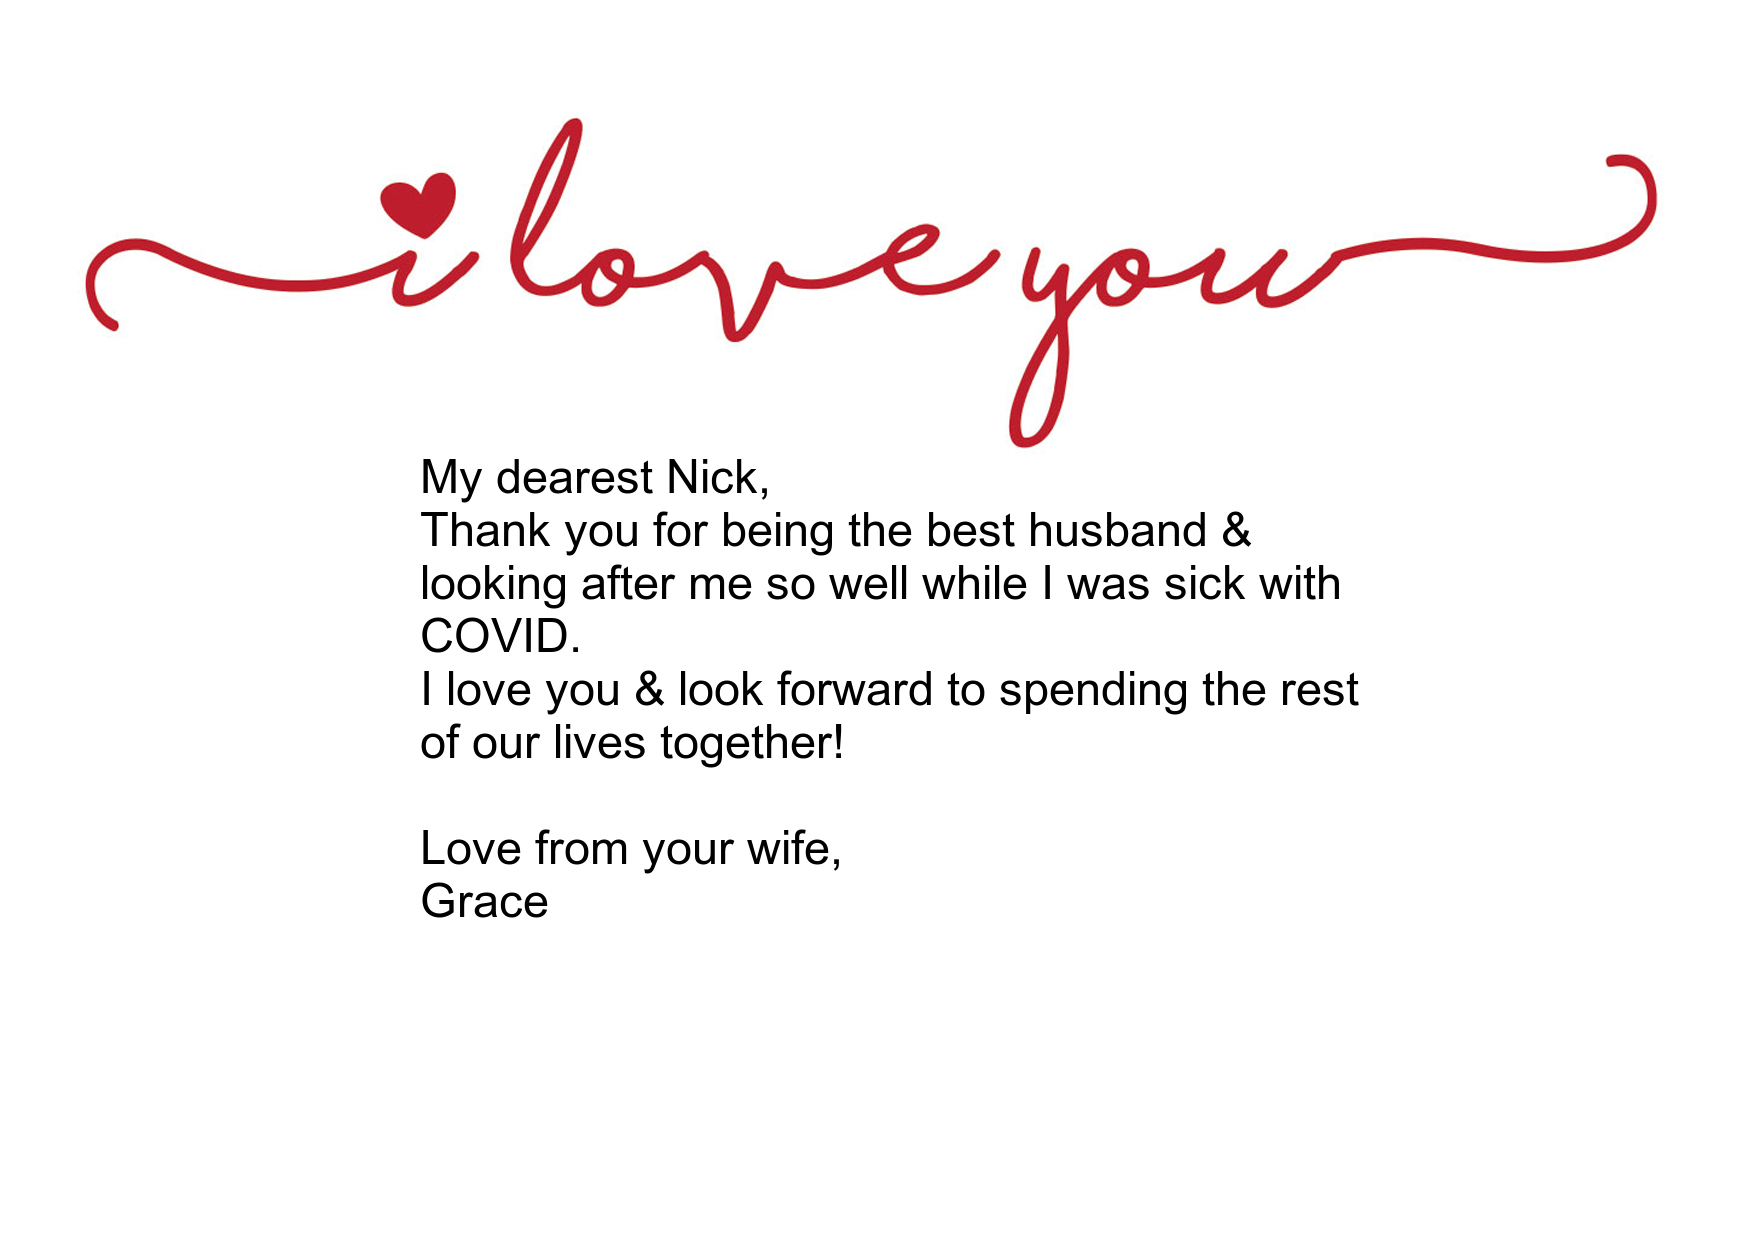 i love you
My dearest Nick,
Thank you for being the best husband &
looking after me so well while I was sick with
COVID.
I love you & look forward to spending the rest
of our lives together!
Love from your wife,
Grace